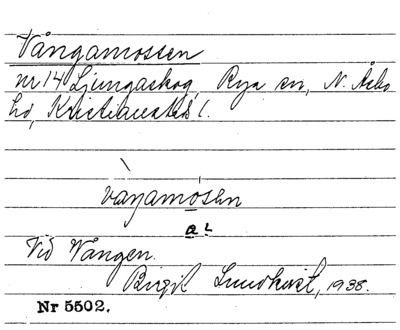 Vångamossen
nr 14 Ljungaskog, Rya sn, N. Åsbo
hd, Kristianstads l.
vaŋamosən
Vid Vången.
Birgit Lundkvist, 1938.
Nr 5502.